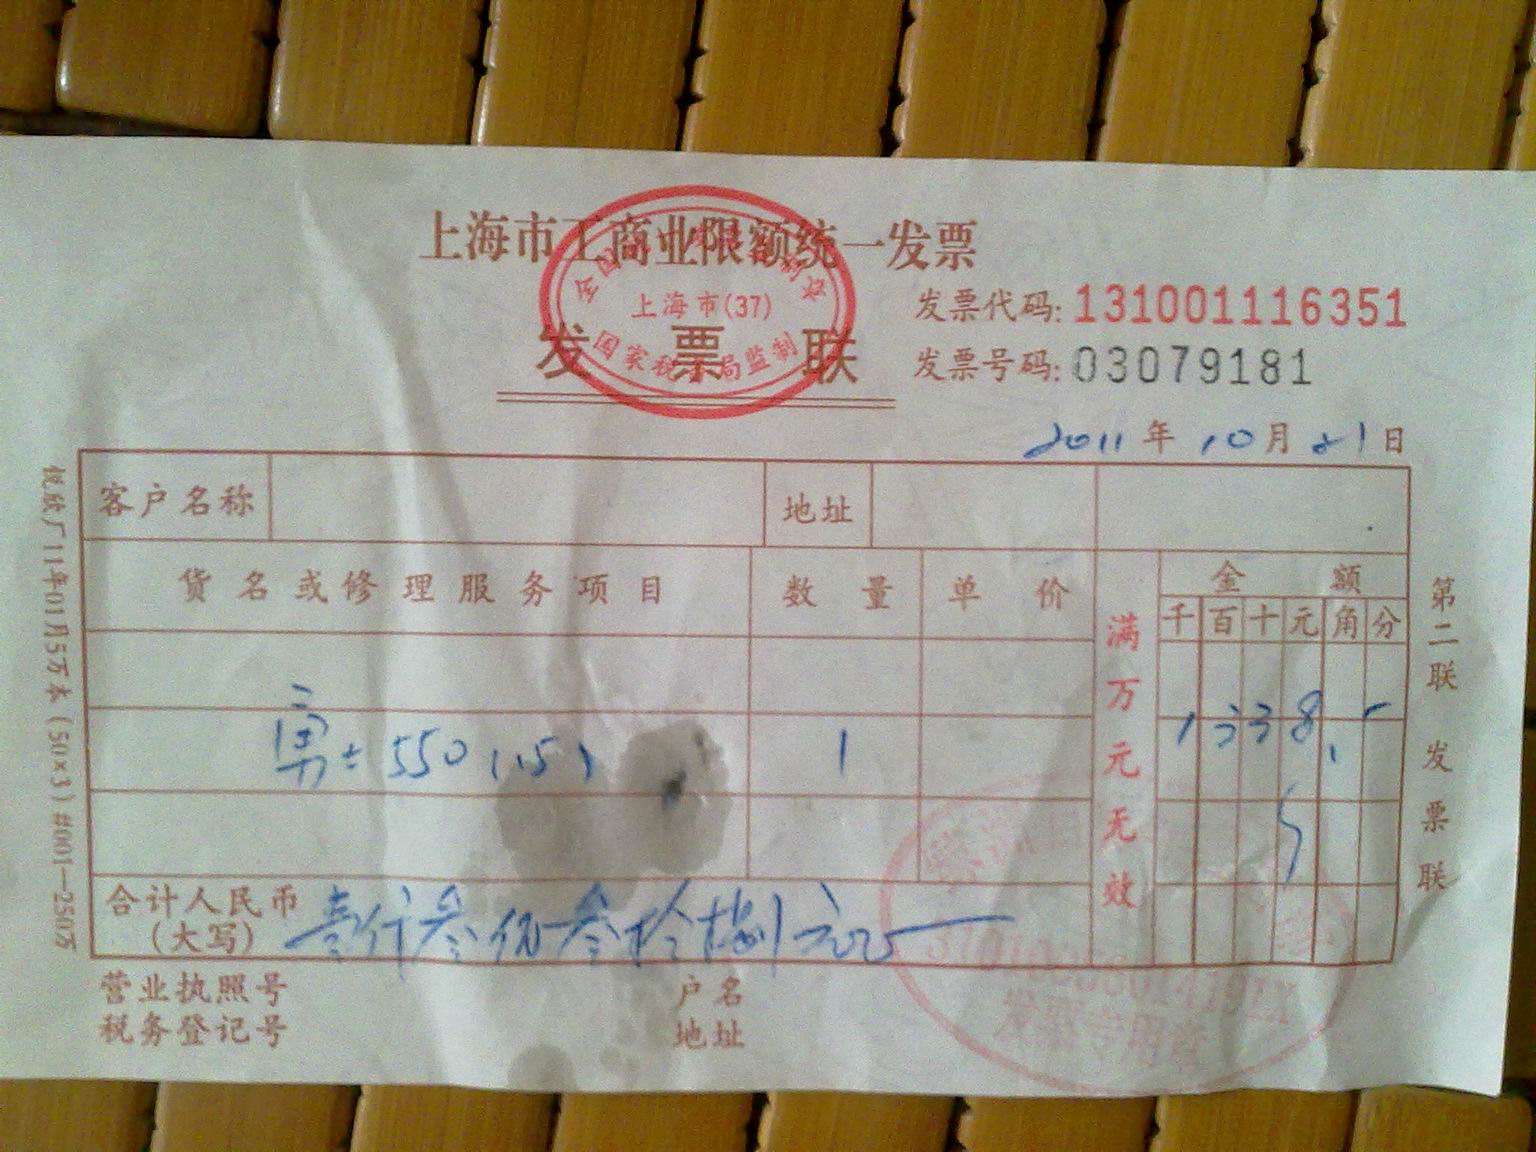 上海市工商业限额统一发票
上海市(37)
国家税务局监制
发票联
发票代码: 131001116351
发票号码: 03079181
2011年10月21日
客户名称 地址
货名或修理服务项目 数量 单价 满万元无效 金额
千百十元角分
550 (15) 1 1338
合计人民币
(大写) 壹仟叁佰叁拾捌元
营业执照号 户名
税务登记号 地址
发票专用章
第二联 发票联
11年01月5万本 (50×3) #001—250万